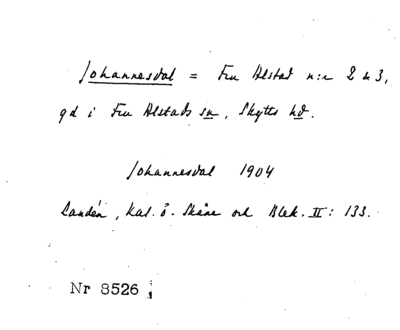 Johannesdal = Fru Alstad n:r 2 & 3,
gd i Fru Alstads sn, Skytts hd.
Johannesdal 1904
Landén, Kal. ö. Skåne och Blek. II: 133.
Nr 8526